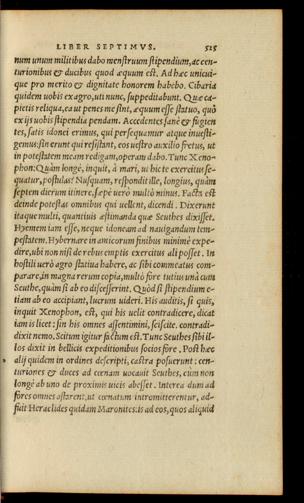 LIBER SEPTIMVS. 525
num unum militibus dabo menstruum stipendium, ac cen-
turionibus & ducibus quod æquum est. Ad hæc unicui-
que pro merito & dignitate honorem habebo. Cibaria
quidem uobis ex agro, uti nunc, suppeditabunt. Quæ ca-
pietis reliqua, ea ut penes me sint, æquum esse statuo, quò
ex ijs uobis stipendia pendam. Accedentes sanè & fugien
tes, satis idonei erimus, qui persequamur atque inuesti-
gemus: sin erunt qui resistant, eos uestro auxilio fretus, ut
in potestatem meam redigam, operam dabo. Tunc Xeno-
phon: Quàm longè, inquit, à mari, ut hic te exercitus se-
quatur, postulas? Nusquam, respondit ille, longius, quàm
septem dierum itinere, sæpe uerò multò minus. Facta est
deinde potestas omnibus qui uellent, dicendi. Dixerunt
itaque multi, quantiuis æstimanda quæ Seuthes dixisset.
Hyemem iam esse, neque idoneam ad nauigandum tem-
pestatem. Hybernare in amicorum finibus minimè expe-
dire, ubi non nisi de rebus emptis exercitus ali posset. In
hostili uerò agro statiua habere, ac sibi commeatus com-
parare, in magna rerum copia, multò fore tutius unà cum
Seuthe, quàm si ab eo discesserint. Quòd si stipendium e-
tiam ab eo accipiant, lucrum uideri. His auditis, si quis,
inquit Xenophon, est, qui his uelit contradicere, dicat
iam is licet: sin his omnes assentimini, sciscite. contradi-
dixit nemo. Scitum igitur factum est. Tunc Seuthes sibi il-
los dixit in bellicis expeditionibus socios fore. Post hæc
alij quidem in ordines descripti, castra posuerunt: cen-
turiones & duces ad cœnam uocauit Seuthes, cùm non
longè ab uno de proximis uicis abesset. Interea dum ad
fores omnes astarent, ut cœnatum intromitterentur, ad-
fuit Heraclides quidam Maronites. is ad eos, quos aliquid